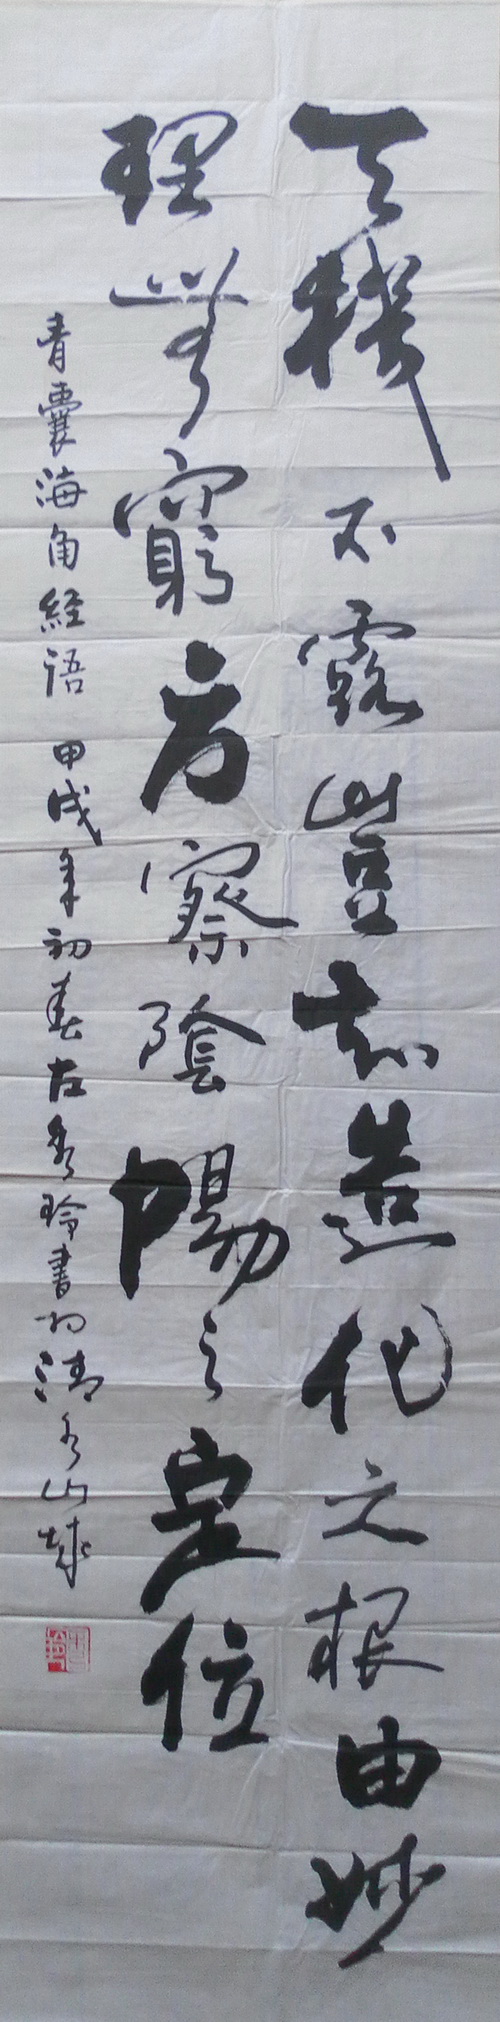 天機不露豈知造化之根由妙
理無窮方察陰陽之定位
青囊海角经语 甲戌年初春左秀玲書於清水山城